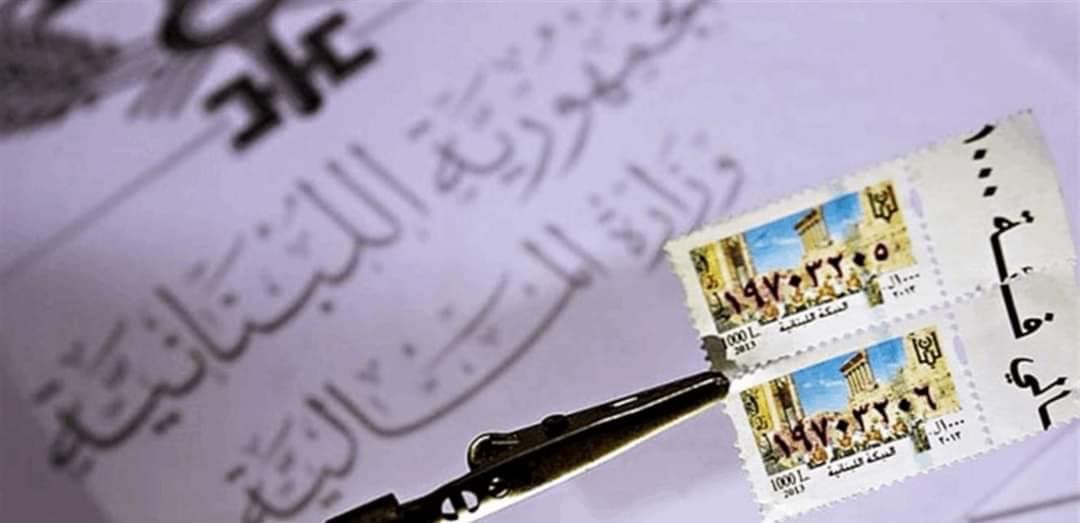 الجمهورية اللبنانية
وزارة المالية
١٩٧٠٣٢٠٥
١٠٠٠ل.
٢٠١٣
الدبكة اللبنانية
1000 L.
2013
١٩٧٠٣٢٠٦
١٠٠٠ل.
٢٠١٣
الدبكة اللبنانية
1000 L.
2013
١٠٠٠
فئة